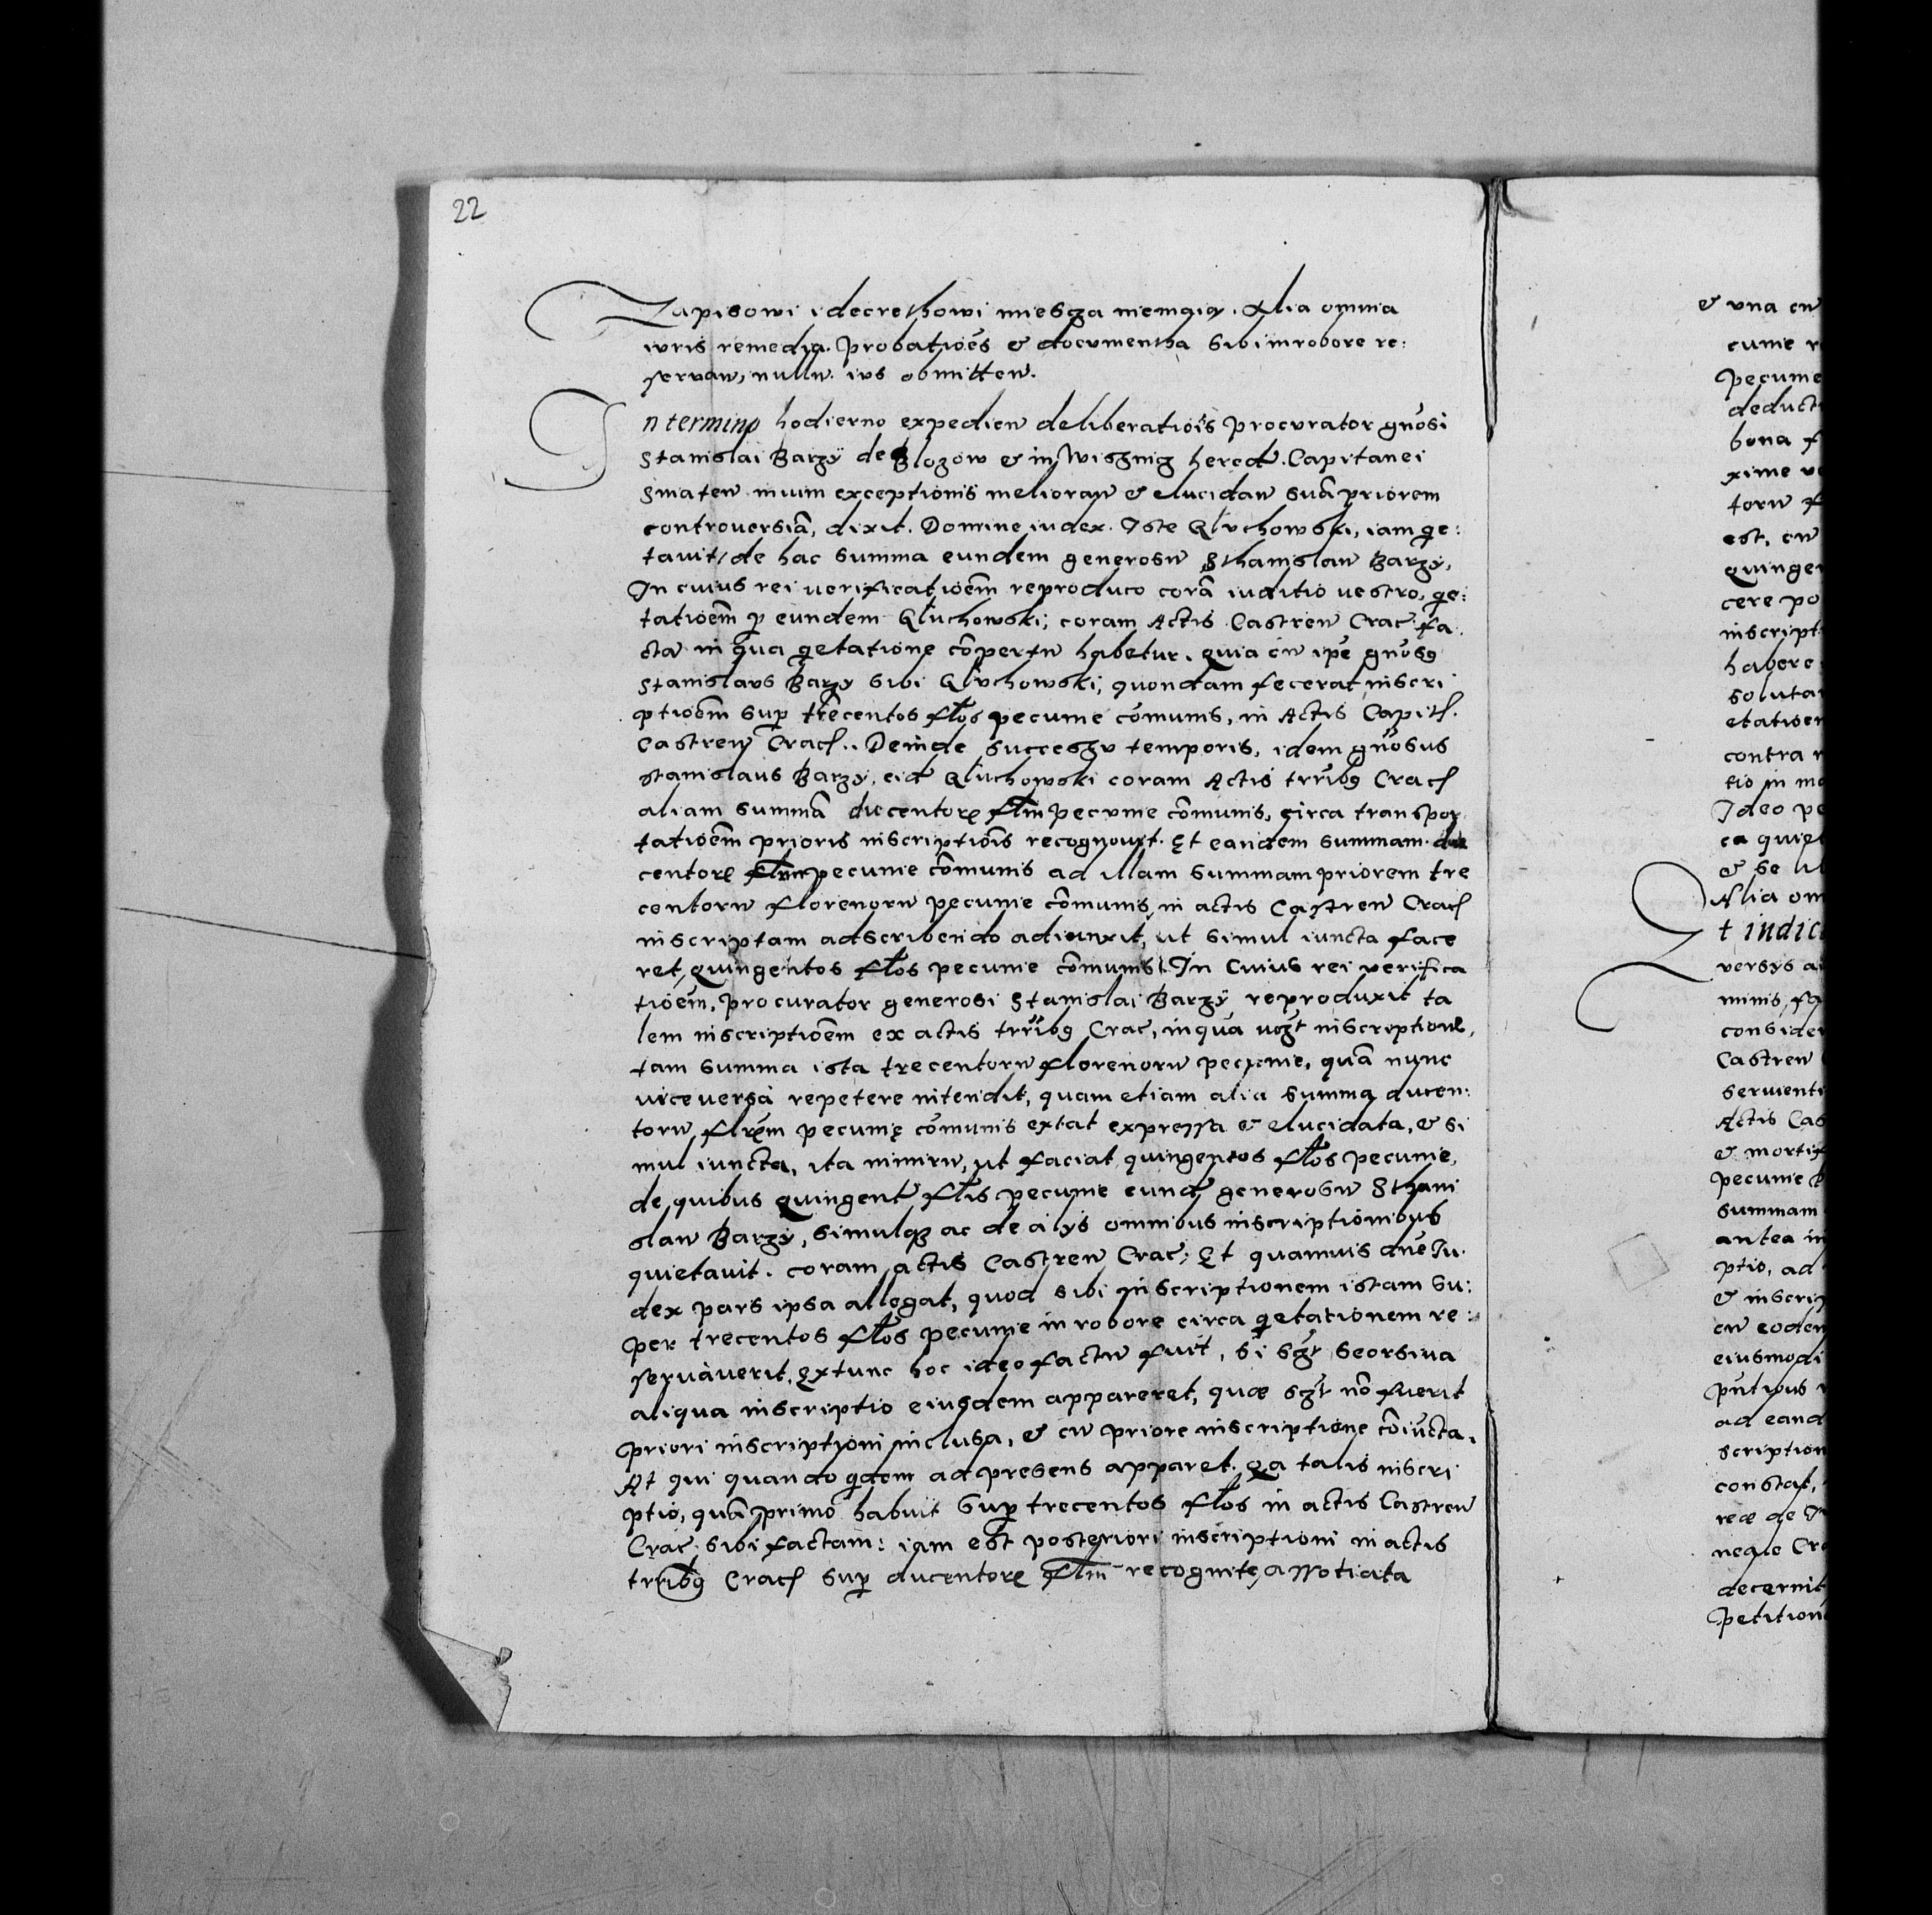 22
Zapisowi i decrethowi miesza niemaiq. Alia omnia
iuris remedia. Probatioēs & documentha sibi in robore re:
servan, nullu. ius obmitten.
In termino hodierno expedien deliberatiois procurator gnōsi
Stanislai Barzÿ de Blozow & in Wisznig hered. Capitanei
Smaten. nuim exceptionis melioran & elucidan suā priorem
controversiā, dixit. Domine iudex. Iste Gluchowski, iam qe:
tavit, de hac summa eundem generosu Sthanislau Barzy,
In cuius rei verificatioēm reproduco corā iuditio vestro, qe:
tatioēm p eundem Gluchowski, coram Actis Castren Crac fa
cta in qua qetatione cōpertu habetur. quia cu ipē gnōsg
Stanislaus Barzy sibi Gluchowski, quondam fecerat inscri
ptioēm sup trēcentos flos pecunie cōmunis, in Actis Capitl.
Castren Crac. Deinde successu temporis, idem gnōsus
Stanislaus Barzy, eid Gluchowski coram Actis trribg Crac
aliam summā ducentorę flm pecunie cōmunis, circa transpor
tatioēm prioris inscriptiōis recognovit. Et eandem summam du
centorę flm pecunie cōmunis ad illam summam priorem tre
centoru florenoru pecunie cōmunis, in actis Castren Crac
inscriptam adscribendo adiunxit, ut simul iuncta face
ret, quingentos flos pecunie cōmunis. In cuius rei verifica
tioēm, procurator generosi Stanislai Barzÿ reproduxit ta
lem inscriptioēm ex actis trribg Crac, in qua vczt inscriptione,
tam summa ista trecentoru florenoru pecunie, quā nunc
vice versà repetere intendit, quam etiam alia summa ducen:
toru flrēm pecunię cōmunis extat expressa & elucidata, & si
mul iuncta, ita nimiru, ut faciat quingentos flos pecunie,
de quibus quingent flis pecunie eund generosu Sthani
slau Barzÿ, simulqz ac de alys omnibus inscriptionibus
quietavit. coram actis Castren Crac; Et quamvis dne Iu.
dex pars ipsa allegat, quod sibi inscriptionem istam su:
per trecentos flos pecunie in robore circa qetationem re:
servàverit, extunc hoc ideo factu fuit, si sczt seorsiva
aliqua inscriptio eiusdem appareret, quæ sczt nō fuerit
priori inscriptioni inclusa, & cu priore inscriptione cōiūcta.
At qui quando qdem ad presens apparet. qa talis inscri
ptio, quā primō habuit sup trecentos flos in actis Castren
Crac. sibi factam: iam est posteriori inscriptioni in actis
trribg Crac sup ducentorę flm recognite, assotiata
& una cu
cume
pecunie
deducti
bona
xime
toru
est, cu
quingen
cere po
inscript
habere
soluta
etation
contra
tio in
Ideo pe
ca quiet
& se
Alia om
t indic
versys
minis,
consider
Castren
servienti
Actis Cas
& mortif
pecunie
summam
antea in
ptio, ad
& inscrip
cu eodem
eiusmodi
pntibus
ad eand
scription
constat,
reæ de
neqle Cra
decernit
Petition